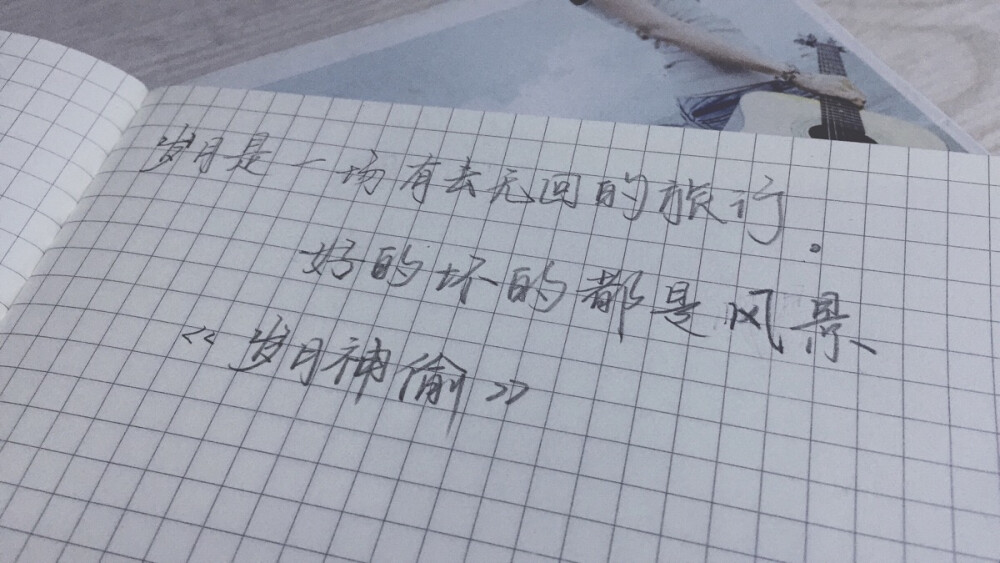 岁月是一场有去无回的旅行.
好的坏的都是风景
《岁月神偷》